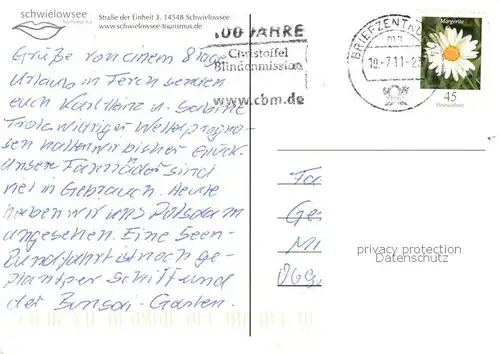 schwielowsee
tourismus e.v.
Straße der Einheit 3, 14548 Schwielowsee
www.schwielowsee-tourismus.de
Grüße von einem 8 tage
Urlaub in Ferch senden
euch Karl Heinz u. Sabine
Trotz widriger Wetterprogno-
sen hatten wir bisher Glück.
Unsere Fahrräder sind
viel in Gebrauch. Heute
haben wir uns Potsdam
angesehen. Eine Seen-
Rundfahrt ist noch ge-
plant per Schiff und
der Bonsai-Garten.
100 JAHRE
Christoffel
Blindenmission
www.cbm.de
BRIEFZENTRUM
-7.11-2
Margerite
45
Deutschland
Fa
Ge
Mi
privacy protection
Datenschutz